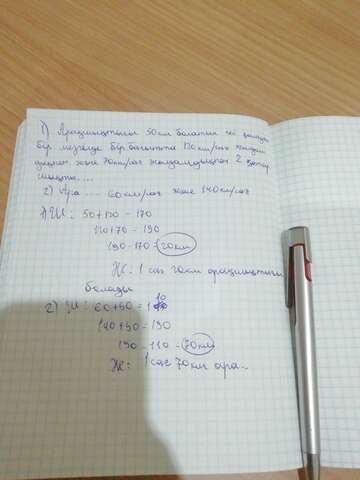 1) Арақашықтығы 50км болатын екі қаладан
бір мезгілде бір бағытта 120км/сағ жылдам
дықпен және 70км/сағ жылдамдықпен 2 катер
шықты....
2) Ара .... 60км/сағ және 140км/сағ
1) Ш: 50+120 = 170
120+70 = 190
190-170 = 20км
Ж: 1 сағ 20км арақашықтығы
болады
2) Ш: 60+50 = 110
140+50 = 190
190 - 110 = 70км
Ж: 1 сағ 70км ара..